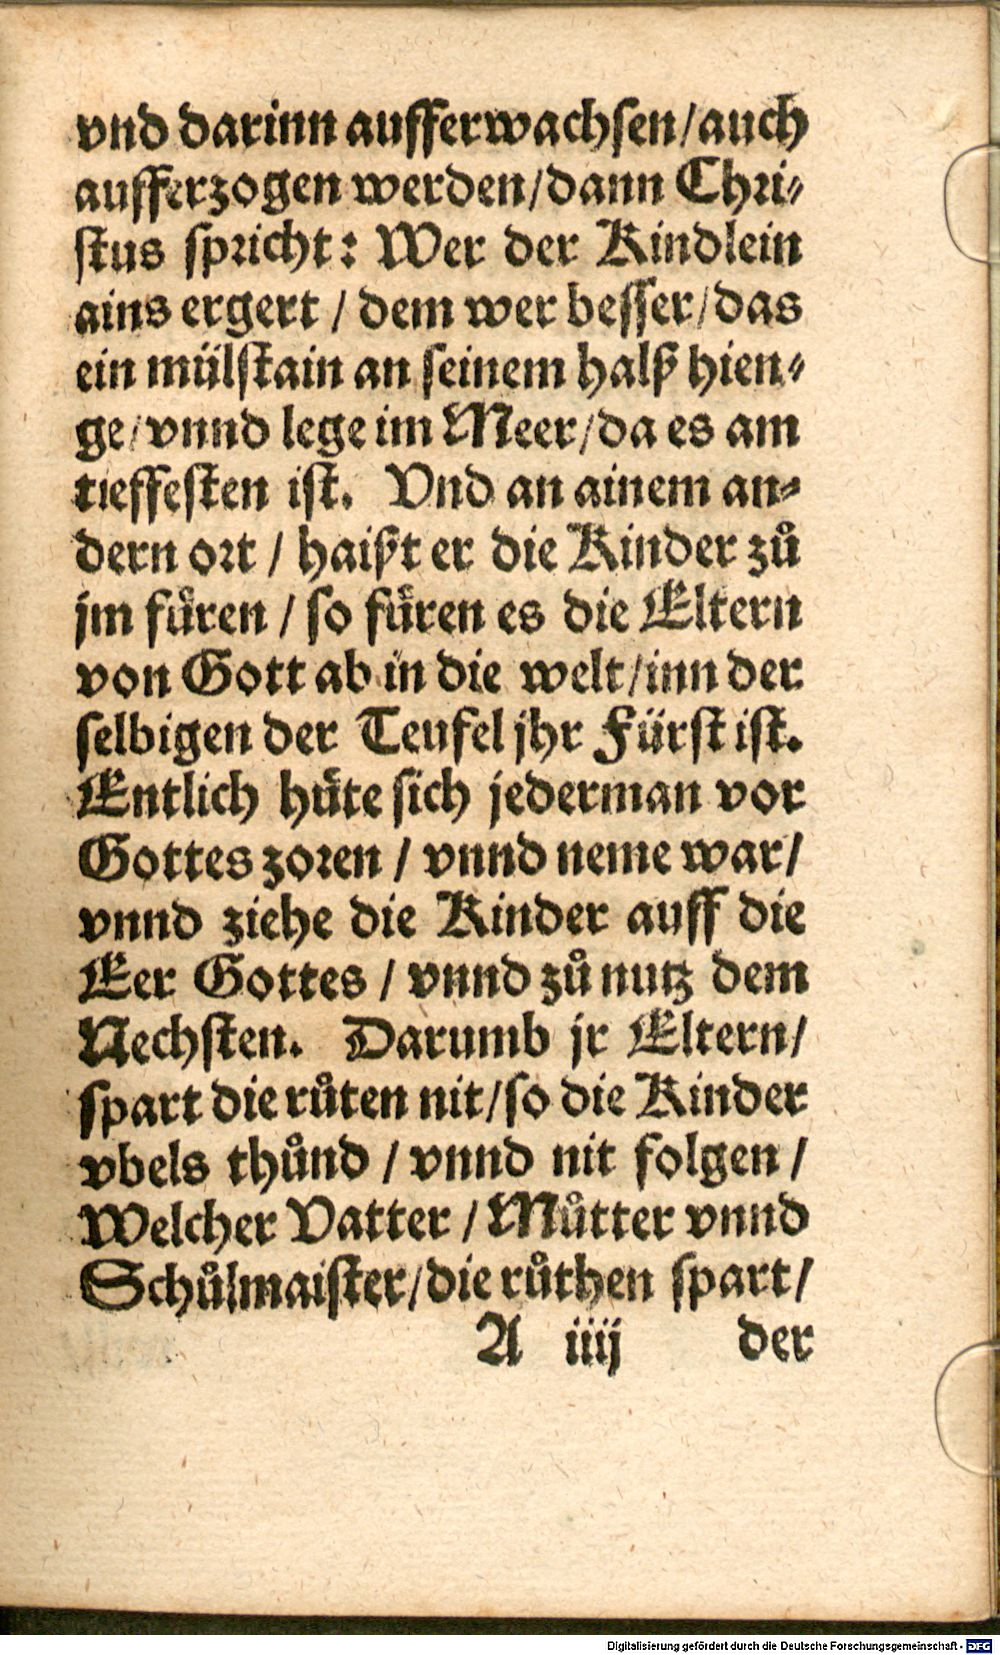 vnd darinn aufferwachsen/auch
aufferzogen werden/dann Chri-
stus spricht: Wer der Kindlein
ains ergert / dem wer besser/das
ein mülstain an seinem halß hien-
ge/vnnd lege im Meer/da es am
tieffesten ist. Vnd an ainem an-
dern ort / haißt er die Kinder zuͦ
jm fuͤren / so fuͤren es die Eltern
von Gott ab in die welt/inn der
selbigen der Teufel jhr Fürst ist.
Entlich huͤte sich jederman vor
Gottes zoren / vnnd neme war/
vnnd ziehe die Kinder auff die
Eer Gottes / vnnd zuͦ nutz dem
Nechsten. Darumb jr Eltern/
spart die ruͦten nit/so die Kinder
vbels thuͦnd / vnnd nit folgen/
Welcher Vatter / Muͦtter vnnd
Schuͦlmaister/die ruͦthen spart/
A iiij der
Digitalisierung gefördert durch die Deutsche Forschungsgemeinschaft - DFG